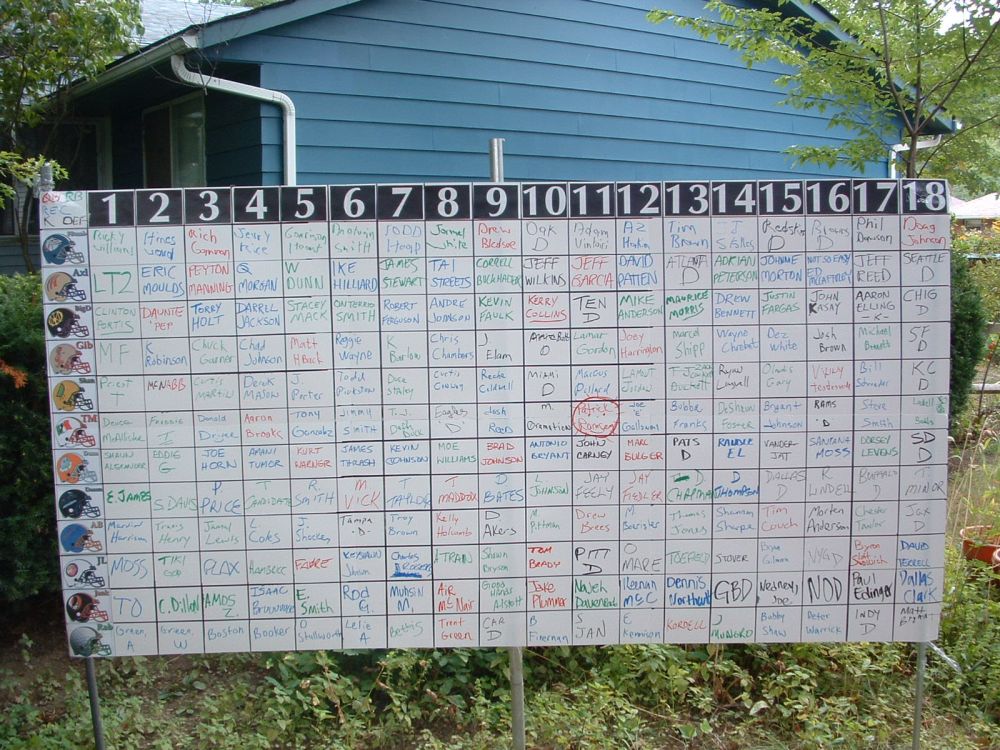 QB RB
REC
K DEF
1 2 3 4 5 6 7 8 9 10 11 12 13 14 15 16 17 18
Ricky Williams Hines Ward Rich Gannon Jerry Rice Garrison Hearst Antowain Smith TODD Heap Jamel White Drew Bledsoe Oak D Adam Vinitari Az Hakim Tim Brown J Redskin D D Phil Dawson Doug Johnson
Axl LT2 ERIC MOULDS PEYTON MANNING Q MORGAN W DUNN IKE HILLIARD JAMES STEWART TAI STREETS CORRELL BUCKHALTER JEFF WILKINS JEFF GARCIA DAVID PATTEN ATLANTA D ADRIAN PETERSON JOHNNIE MORTON NOT SO EASY ED MCCAFFREY JEFF REED SEATTLE D
MgD CLINTON PORTIS DAUNTE 'PEP TORRY HOLT DARRELL JACKSON STACEY MACK ONTERRIO SMITH ROBERT FERGUSON ANDRE JOHNSON KEVIN FAULK KERRY COLLINS TEN D MIKE ANDERSON MAURICE MORRIS DREW BENNETT JUSTIN FARGAS JOHN KASAY AARON ELLING -K- CHIG D
Gib MF K Robinson Chuck Garner Chad Johnson Matt H Back Reggie Wayne K Barlow Chris Chambers J Elam D Lamar Gordon Joey Harrington Marcel Shipp Wayne Chrebet Dez White Josh Brown Michael Bennett SF D
Shan Priest T MCNABB Curtis MARTIN Derek MASON J. Porter Todd Pinkston Duce Staley Curtis Conway Reche Caldwell Miami D Marcus Pollard LAMONT Jordan T.J. Duckett Ryan Longwell Olindis Gary Vinny Testaverde Bill KC D
TM Deuce McAllister Freddie T Donald Driver Aaron Brooks Tony Gonzalez Jimmy Smith T.J. Eagles 'D' Josh Reed M. Patrick Ramsey Joe 'E' Galloway Bubba Franks DeShaun Foster Bryant Johnson RAMS 'D' Steve Smith
Dum SHAUN ALEXANDER EDDIE G JOE HORN AMANI TUMOR KURT WARNER JAMES THRASH KEVIN JOHNSON MOE WILLIAMS BRAD JOHNSON ANTONIO BRYANT JOHN CARNEY MARC BULGER PATS D RANDEL EL VANDER- JAT SANTANA MOSS DORSEY LEVENS SD D
E.JAMES S. DAVIS P PRICE T CANDIDATE R. SMITH M VICK T TAYLOR T MADDOX D BATES L JOHNSON JAY FEELY JAY FIEDLER D CHAPMAN D THOMPSON DALLAS D K LINDELL BUFFALO D T MINOR
AB Marvin Harrison Travis Henry Jamal Lewis L. Coles J. Shockey Tampa -D- Troy Brown Kelly Holcomb D Akers M. Pittman Drew Brees M. Barister Thomas Jones Shannon Sharpe Tim Couch Morten Anderson Chester Taylor Jax D
JL MOSS TIKI PLAX HAMBRICK FAVRE KEYSHAWN Johnson Charles Rogers ATRAIN Shawn Bryson TOM BRADY PITT D O MARE TOEFIELD STOVER NYG D Byron Leftwich DAVID TERRELL
Junk TO C. Dillon AMOS Z. ISAAC BRUUUUUCE E. Smith Rod G. MUHSIN M. Air McNair Good Hands Alstott Jake Plummer Najeh Davenport Keenan McC Dennis Northcutt GBD Wesley, Joe NOD Paul Edinger Dallas Clark
Rab Green, A Green, W Boston Booker O Stallworth Lelie A Bettis Trent Green CAR D B Finernan S JAN E Kennison KORDELL J MUNGRO Bobby Shaw Peter Warrick INDY D Matt